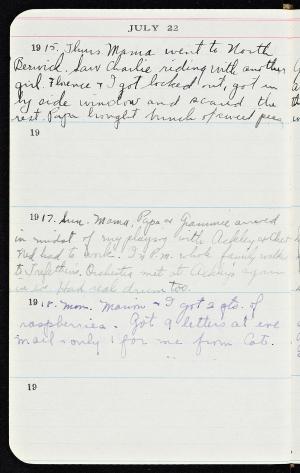 JULY 22
1915. Thurs Mama went to North
Berwick. Saw Charlie riding with another
girl. Florence + I got locked out, got in
by side window and scared the
rest. Papa bought bunch of sweet peas
19
1917. Sun. Mama, Papa + Grammie arrived
in midst of my playing with
Ned had to work. In P.M. whole family walk
to Orchestra met at again
Had real drum too.
1918. Mon. Marion + I got 2 qts. of
raspberries. Got 9 letters at eve
mail + only 1 for me from Cat.
19